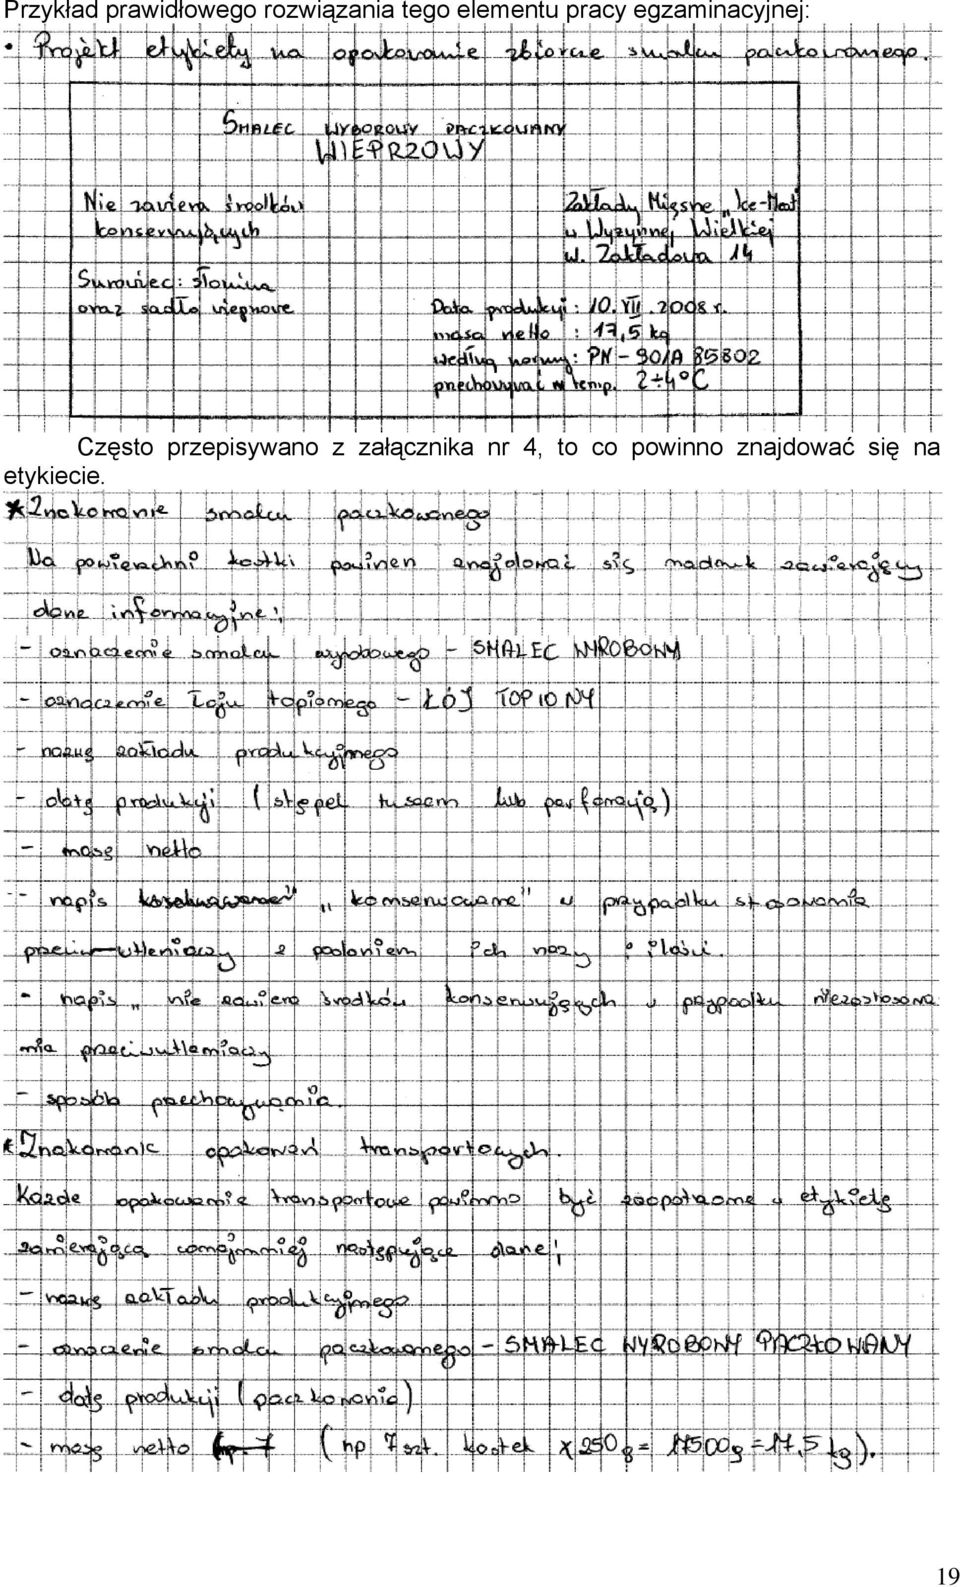 Przykład prawidłowego rozwiązania tego elementu pracy egzaminacyjnej:
• Projekt etykiety na opakowanie zbiorcze smalcu paczkowanego.
SMALEC WYBOROWY PACZKOWANY
WIEPRZOWY
Nie zawiera środków
konserwujących
Surowiec: słonina
oraz sadło wieprzowe
Zakłady Mięsne „Ice-Meat"
w Wyżynnej Wielkiej
ul. Zakładowa 14
Data produkcji: 10.VII.2008 r.
masa netto : 17,5 kg
według normy: PN-90/A 85802
przechowywać w temp. 2÷4°C
Często przepisywano z załącznika nr 4, to co powinno znajdować się na
etykiecie.
* Znakowanie smalcu paczkowanego
Na powierzchni kostki powinien znajdować się nadruk zawierający
dane informacyjne:
- oznaczenie smalcu wyrobowego - SMALEC WYROBOWY
- oznaczenie łoju topionego - ŁÓJ TOPIONY
- nazwę zakładu produkcyjnego
- datę produkcji (stępel tuszem lub perforacją)
- masę netto
- napis „konserwowane" w przypadku stosowania
przeciwutleniaczy z podaniem ich nazy i ilości.
- napis „nie zawiera środków konserwujących w przypadku niezastosowa
nia przeciwutleniaczy
- sposób przechowywania.
* Znakowanie opakowań transportowych.
Każde opakowanie transportowe powinno być zaopatrzone w etykietę
zawierającą conajmniej następujące dane:
- nazwę zakładu produkcyjnego
- oznaczenie smalcu paczkowanego - SMALEC WYROBOWY PACZKOWANY
- datę produkcji (paczkowania)
- masę netto (np 7 szt. kostek x 250 g = 17500g = 17,5 kg).
19